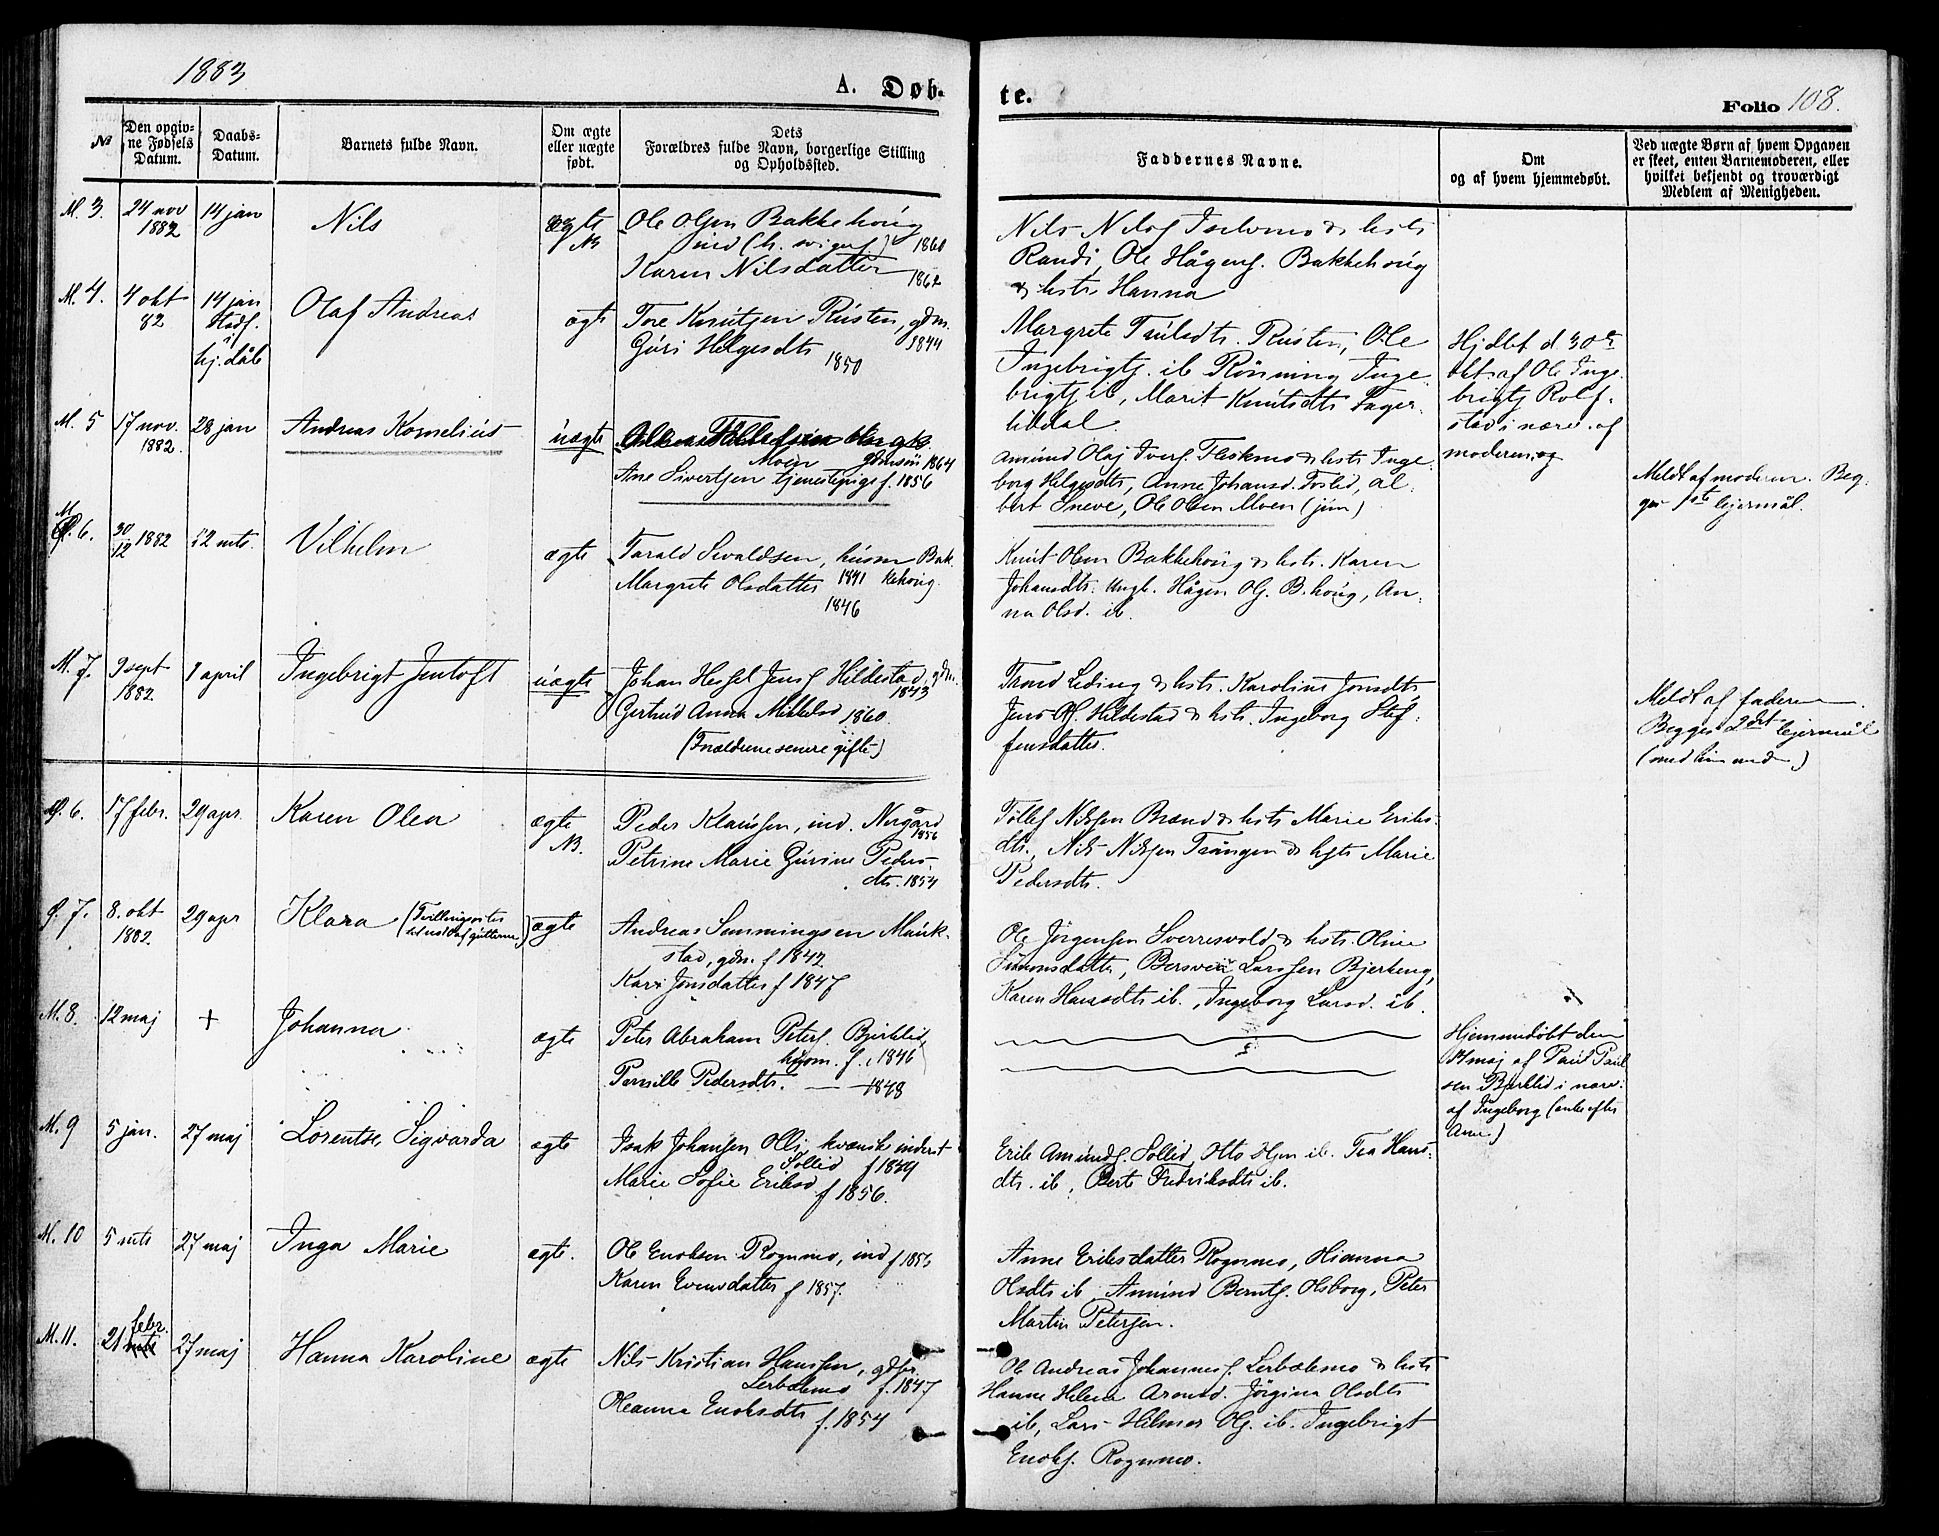 1883
A. Døb-
te.
Folio 108.
№
Den opgiv-
ne Fødsels
Datum.
Daabs-
Datum.
Barnets fulde Navn.
Om ægte
eller uægte
født.
Dets
Forældres fulde Navn, borgerlige Stilling
og Opholdssted.
Faddernes Navne.
Om
og af hvem hjemmedøbt.
Ved uægte Børn af hvem Opgaven
er skeet, enten Barnemoderen, eller
hvilket bekjendt og troværdigt
Medlem af Menigheden.
M. 3. 24 nov
1882
14 jan
Nils
ægte
NB
Ole Olsen Bakkehoug
ind (h. svigerf.) 1860
Karen Nilsdatter
1862
Nils Nilsf. & hstr
Randi, Ole Hågens. Bakkehoug
& hstr Hanna
M. 4. 4 okt
82
14 jan
stadf.
hj. dåb
Olaf Andreas
ægte
Tore Knutsen Rusten, gdm.
1844
Guri Helgesdtr
1850
Margrete Paulsdtr. Rusten, Ole
Ingebrigts. ib Rønning Inge-
brigts ib, Marit Knutsdtr Fager-
liddal.
Hjdbt d 30te
okt. af Ole Inge-
brigts Rolf-
stad i nærv. af
moderen og
M. 5 17 nov.
1882.
28 jan
Andreas Kornelius
uægte
Moen gdmsøn 1864
Ane Sivertsen tjenestepige f. 1856
Amund Olaj Ivers. Fleskmo & hstr Inge-
borg Helgesdtr, Anne Johansd. Foslid, Al-
bert Sneve, Ole Olsen Moen (jun)
Meldt af moderen. Beg-
ges 1ste lejermål.
M. 6. 30/12 1882
12 mts.
Vilhelm
ægte
Tarald Sivaldsen, husm Bak-
1841 kehoug.
Margrete Olsdatter
1846
Knut Olsen Bakkehoug & hstr. Karen
Johansdtr. Ungk. Hågen Ols. B.houg, An-
na Olsd. ib.
M. 7. 9 sept
1882.
1 april
Ingebrigt Jentoft
uægte
Johan Hessel Jens. Hildestad, gdm.
1843
Gertrud Anna Mikkelsd 1860.
(Forældrene senere gifte)
Trond Leding & hstr. Karoline Jonsdtr,
Jens Hildestad & hstr. Ingeborg Stef-
fensdatter.
Meldt af faderen.
Begges 2det lejermål
M. 6. 17 febr.
29 apr.
Karen Olea
ægte
NB.
Peder Klaussen, ind. Nergård
1856
Petrine Marie Gurine Peders-
dtr. 1854
Tollef Nilssen Brænd & hstr Marie Eriks-
dtr., Nils Nilssen Trangen & hstr Marie
Pedersdtr.
7. 8. okt
1882.
29 apr
Klara (Tvillingsøster
ægte
Andreas Simmingsen Mauk-
stad, gdm. f 1842
Kari Jonsdatter f 1847
Ole Jørgensen Sverresvold & hstr. Oline
Simonsdatter, Bersven Larssen Bjerkeng,
Karen Hansdtr ib. Ingeborg Larsd. ib.
M. 8. 12 maj
+
Johanna
ægte
Peter Abraham Peters. Bjerklid,
husm. f. 1846
Pernille Pedersdtr. — 1848
Hjemmedøbt den
14 maj af Paul Paul-
sen Bjerklid i nærv.
af Ingeborg (enke efter
Arne)
M. 9 5 jan.
27 maj
Lorentse Sigvarda
ægte
Isak Johansen Olli, kvænsk inderst
Sollid f 1849
Marie Sofie Eriksd f 1856.
Erik Amunds. Sollid, Otto Olsen ib. Tea Hans-
dtr. ib, Berte Fredriksdtr ib.
M. 10 5 mts
27 maj
Inga Marie
ægte.
Ole Enoksen Rognmo, ind f 1856
Karen Evensdatter f 1857.
Anne Eriksdatter Rognmo, Hianna
Olsdtr ib. Amund Bernts. Olsborg, Peter
Martin Petersen.
M. 11. 21 febr.
27 maj
Hanna Karoline
ægte
Nils Kristian Hanssen, gdbr.
Lerbækmo f. 1847
Oleanna Enoksdtr
f. 1854
Ole Andreas Johannes. Lerbækmo & hstr
Hanne Helena Aronsd. Jørgina Olsdtr
ib, Lars Hilmar Ols. ib. Ingebrigt
Enoks. Rognmo.